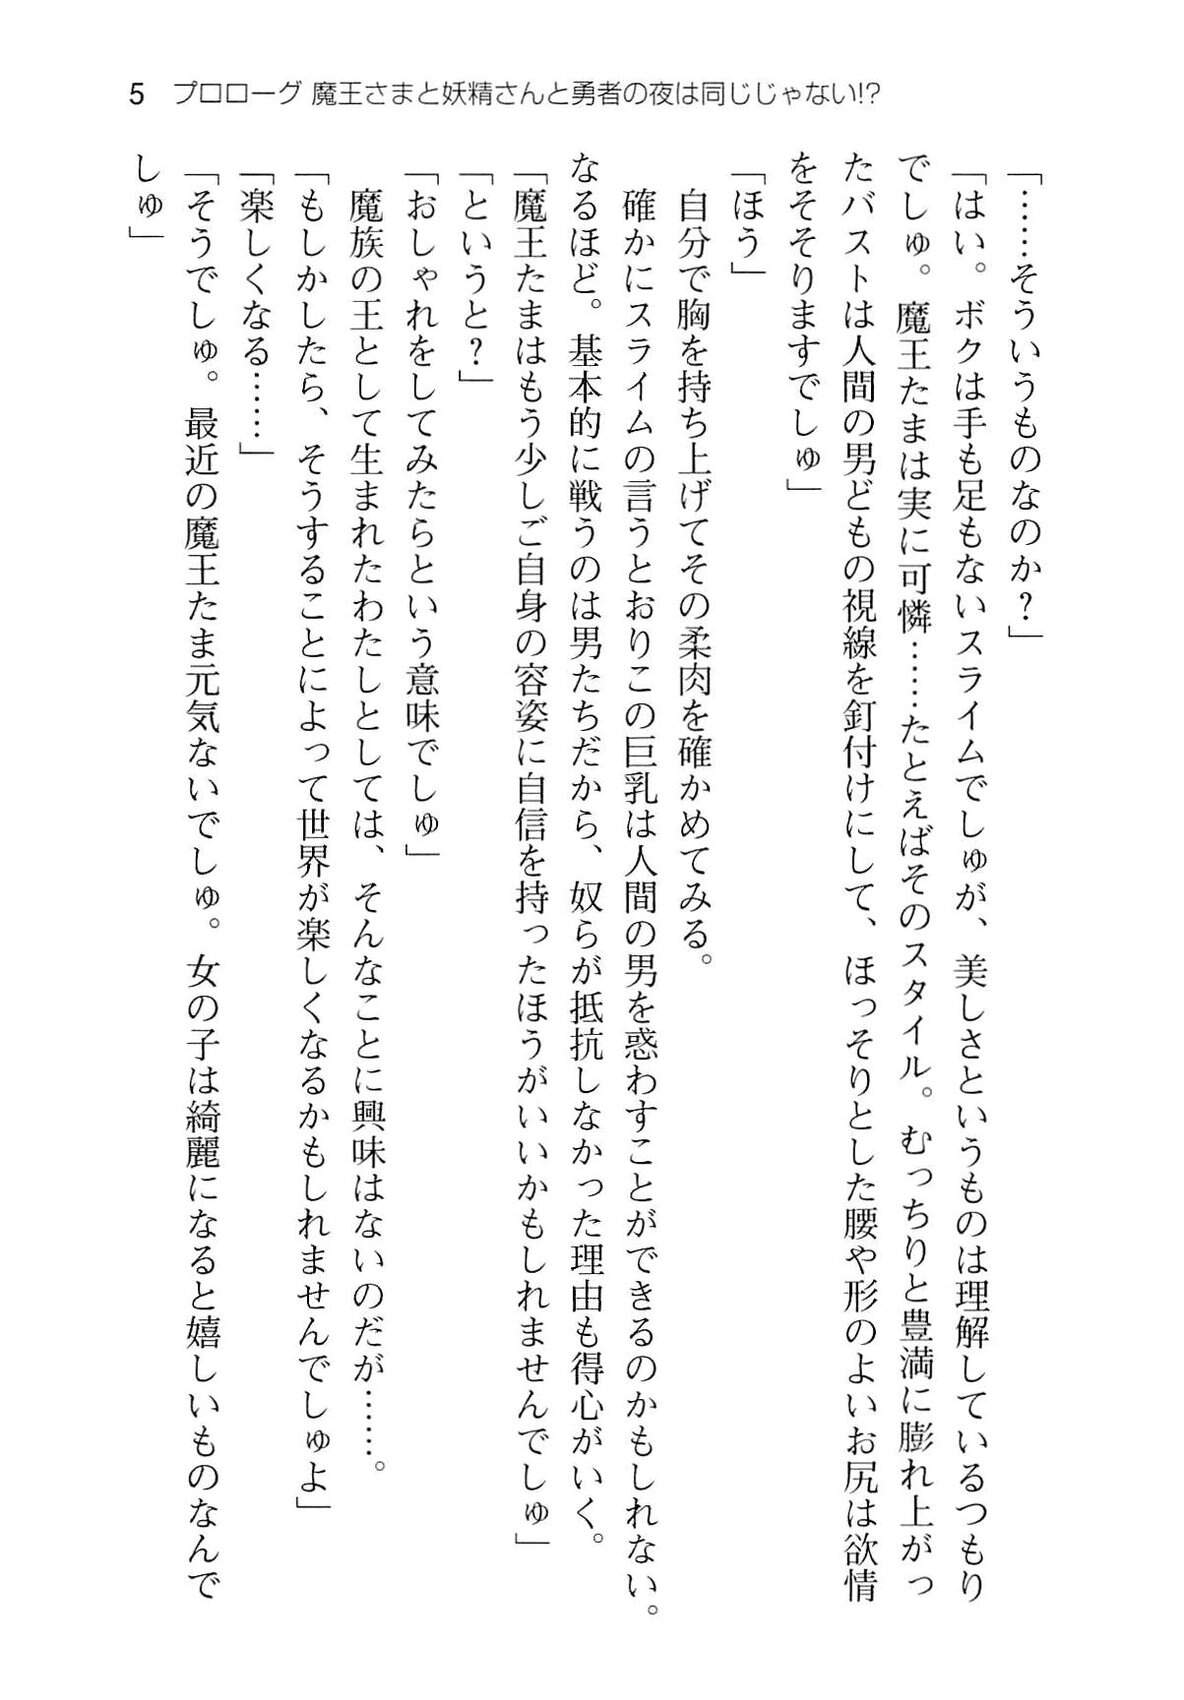 5 プロローグ 魔王さまと妖精さんと勇者の夜は同じじゃない!?
「……そういうものなのか？」
「はい。ボクは手も足もないスライムでしゅが、美しさというものは理解しているつもり
でしゅ。魔王たまは実に可憐……たとえばそのスタイル。むっちりと豊満に膨れ上がっ
たバストは人間の男どもの視線を釘付けにして、ほっそりとした腰や形のよいお尻は欲情
をそそりますでしゅ」
「ほう」
自分で胸を持ち上げてその柔肉を確かめてみる。
確かにスライムの言うとおりこの巨乳は人間の男を惑わすことができるのかもしれない。
なるほど。基本的に戦うのは男たちだから、奴らが抵抗しなかった理由も得心がいく。
「魔王たまはもう少しご自身の容姿に自信を持ったほうがいいかもしれませんでしゅ」
「というと？」
「おしゃれをしてみたらという意味でしゅ」
魔族の王として生まれたわたしとしては、そんなことに興味はないのだが……。
「もしかしたら、そうすることによって世界が楽しくなるかもしれませんでしゅよ」
「楽しくなる……」
「そうでしゅ。最近の魔王たま元気ないでしゅ。女の子は綺麗になると嬉しいものなんで
しゅ」